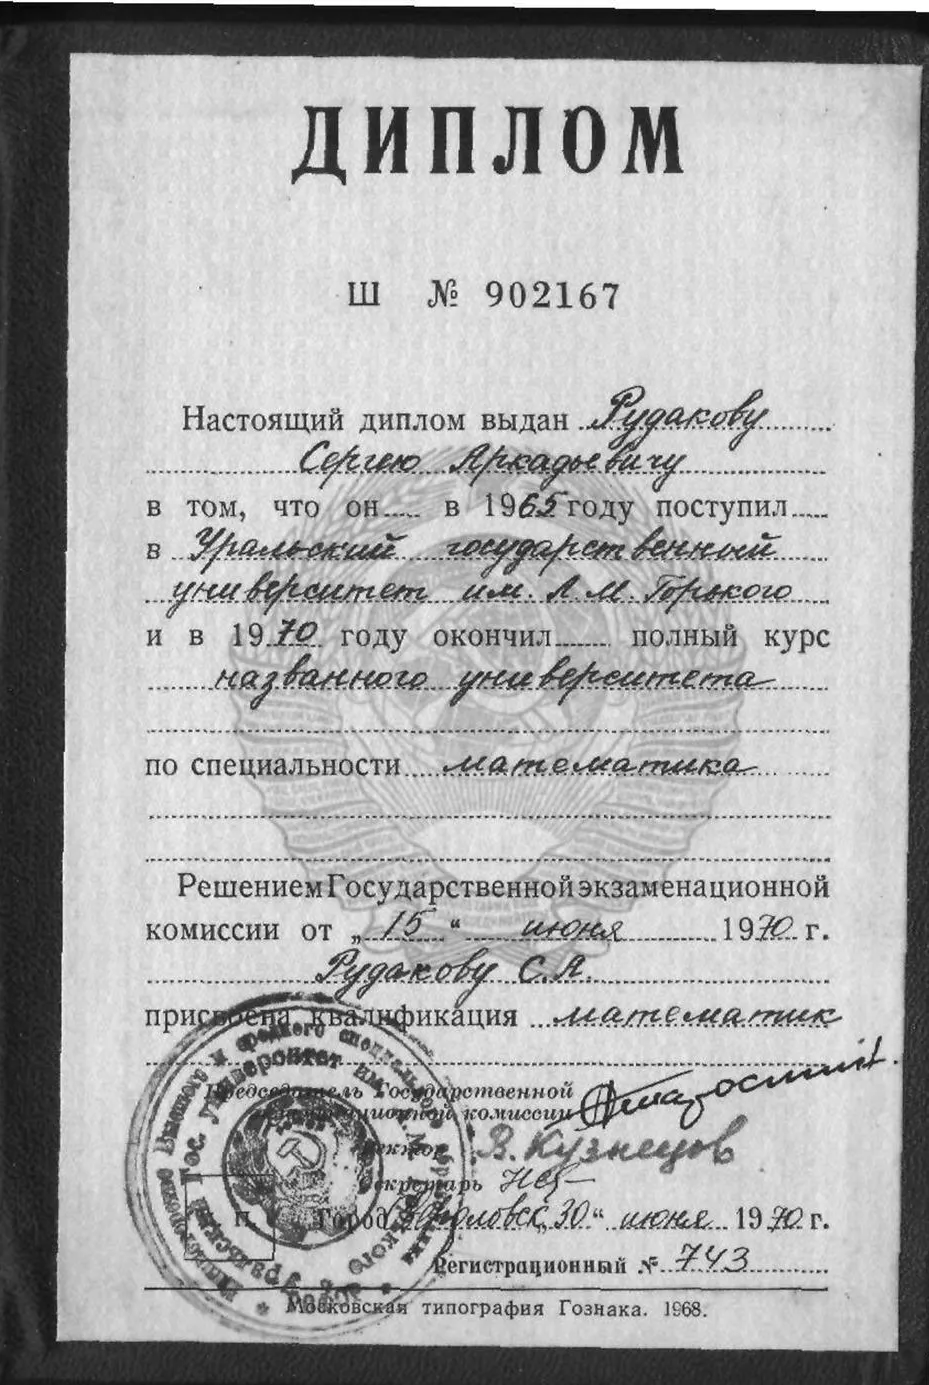 ДИПЛОМ
Ш № 902167
Настоящий диплом выдан Рудакову
Сергею Аркадьевичу
в том, что он в 1965 году поступил
в Уральский государственный
университет им. А. М. Горького
и в 1970 году окончил полный курс
названного университета
по специальности математика
Решением Государственной экзаменационной
комиссии от „15“ июня 1970 г.
Рудакову С. А.
присвоена квалификация математик
Председатель Государственной
экзаменационной комиссии
Ректор В. Кузнецов
Секретарь
Город Свердловск „30“ июня 1970 г.
Регистрационный № 743
Московская типография Гознака. 1968.